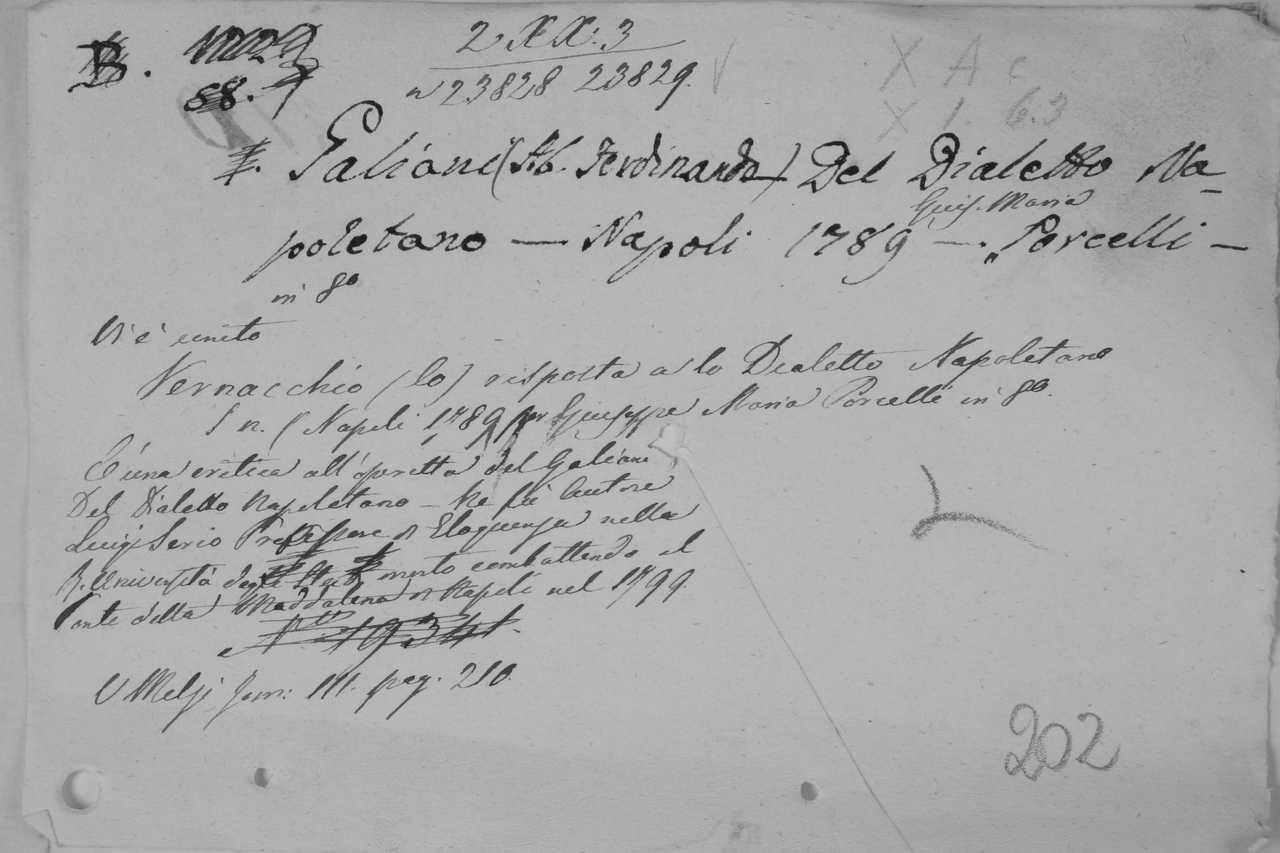 B.
58.
2. XX. 3
n 23828 23829.
X A c
X 1. 6.3
Galiani (Ab. Ferdinando) Del Dialetto Na-
Gius. Maria
poletano — Napoli 1789 — Porcelli —
in 8º
Vi è unito
Vernacchio (lo) risposta a lo Dialetto Napoletano
S n. (Napoli 1789 per Giuseppe Maria Porcelli in 8º.
È una critica all'operetta del Galiani
Del Dialetto Napoletano — Ne fù Autore
Luigi Serio Professore di Eloquenza nella
R. Università degli Studi morto combattendo al
Ponte della Maddalena di Napoli nel 1799
1934
V Melzi Tom: III. pag. 210.
202